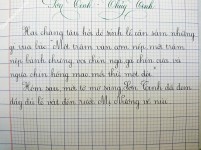 Sơn Tinh Thủy Tinh
Hai chàng tâu hỏi đồ sính lễ cần sắm những
gì vua bảo: "Một trăm ván cơm nếp, một trăm
nệp bánh chưng, voi chín ngà, gà chín cựa và
ngựa chín hồng mao mỗi thứ một đôi."
Hôm sau, mới tờ mờ sáng Sơn Tinh đã đem
đầy đủ lễ vật đến rước Mị Nương về núi